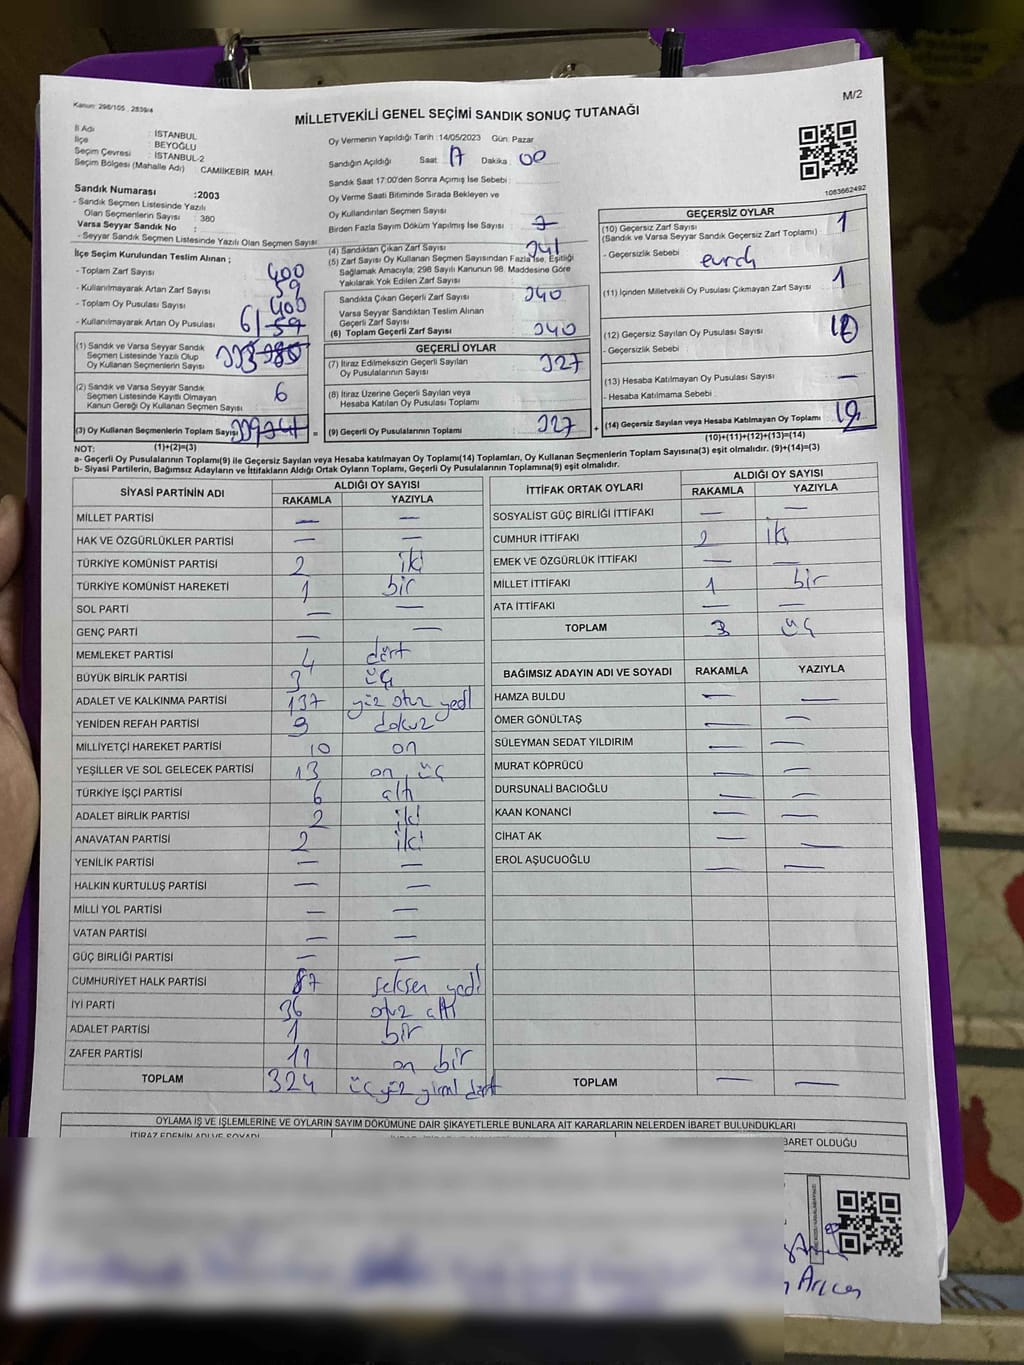 Kanun: 298/105 , 2839/4
M/2
MİLLETVEKİLİ GENEL SEÇİMİ SANDIK SONUÇ TUTANAĞI
İl Adı : İSTANBUL
İlçe : BEYOĞLU
Seçim Çevresi : İSTANBUL-2
Seçim Bölgesi (Mahalle Adı) CAMİİKEBİR MAH.
Sandık Numarası :2003
- Sandık Seçmen Listesinde Yazılı
Olan Seçmenlerin Sayısı : 380
Varsa Seyyar Sandık No :
- Seyyar Sandık Seçmen Listesinde Yazılı Olan Seçmen Sayısı
İlçe Seçim Kurulundan Teslim Alınan ;
- Toplam Zarf Sayısı 400
- Kullanılmayarak Artan Zarf Sayısı 59
- Toplam Oy Pusulası Sayısı 400
- Kullanılmayarak Artan Oy Pusulası 61 59
(1) Sandık ve Varsa Seyyar Sandık
Seçmen Listesinde Yazılı Olup
Oy Kullanan Seçmenlerin Sayısı 333
(2) Sandık ve Varsa Seyyar Sandık
Seçmen Listesinde Kayıtlı Olmayan
Kanun Gereği Oy Kullanan Seçmen Sayısı 6
(3) Oy Kullanan Seçmenlerin Toplam Sayısı 339
(1)+(2)=(3)
Oy Vermenin Yapıldığı Tarih :14/05/2023 Gün: Pazar
Sandığın Açıldığı Saat 17 Dakika : 00
Sandık Saat 17:00'den Sonra Açılmış İse Sebebi :
Oy Verme Saati Bitiminde Sırada Bekleyen ve
Oy Kullandırılan Seçmen Sayısı
Birden Fazla Sayım Döküm Yapılmış İse Sayısı :
(4) Sandıktan Çıkan Zarf Sayısı 341
(5) Zarf Sayısı Oy Kullanan Seçmen Sayısından Fazla İse, Eşitliği
Sağlamak Amacıyla; 298 Sayılı Kanunun 98. Maddesine Göre
Yakılarak Yok Edilen Zarf Sayısı
Sandıkta Çıkan Geçerli Zarf Sayısı 340
Varsa Seyyar Sandıktan Teslim Alınan
Geçerli Zarf Sayısı
(6) Toplam Geçerli Zarf Sayısı 340
GEÇERLİ OYLAR
(7) İtiraz Edilmeksizin Geçerli Sayılan
Oy Pusulalarının Sayısı 327
(8) İtiraz Üzerine Geçerli Sayılan veya
Hesaba Katılan Oy Pusulası Toplamı
= (9) Geçerli Oy Pusulalarının Toplamı 327 +
1083662492
GEÇERSİZ OYLAR
(10) Geçersiz Zarf Sayısı 1
(Sandık ve Varsa Seyyar Sandık Geçersiz Zarf Toplamı)
- Geçersizlik Sebebi
(11) İçinden Milletvekili Oy Pusulası Çıkmayan Zarf Sayısı 1
(12) Geçersiz Sayılan Oy Pusulası Sayısı
- Geçersizlik Sebebi :
(13) Hesaba Katılmayan Oy Pusulası Sayısı —
- Hesaba Katılmama Sebebi :
(14) Geçersiz Sayılan veya Hesaba Katılmayan Oy Toplamı 12
(10)+(11)+(12)+(13)=(14)
NOT:
a- Geçerli Oy Pusulalarının Toplamı(9) ile Geçersiz Sayılan veya Hesaba katılmayan Oy Toplamı(14) Toplamları, Oy Kullanan Seçmenlerin Toplam Sayısına(3) eşit olmalıdır. (9)+(14)=(3)
b- Siyasi Partilerin, Bağımsız Adayların ve İttifakların Aldığı Ortak Oyların Toplamı, Geçerli Oy Pusulalarının Toplamına(9) eşit olmalıdır.
SİYASİ PARTİNİN ADI ALDIĞI OY SAYISI
RAKAMLA YAZIYLA
MİLLET PARTİSİ — —
HAK VE ÖZGÜRLÜKLER PARTİSİ — —
TÜRKİYE KOMÜNİST PARTİSİ 2 iki
TÜRKİYE KOMÜNİST HAREKETİ 1 bir
SOL PARTİ — —
GENÇ PARTİ — —
MEMLEKET PARTİSİ 4 dört
BÜYÜK BİRLİK PARTİSİ 3 üç
ADALET VE KALKINMA PARTİSİ 137 yüz otuz yedi
YENİDEN REFAH PARTİSİ 9 dokuz
MİLLİYETÇİ HAREKET PARTİSİ 10 on
YEŞİLLER VE SOL GELECEK PARTİSİ 13 on üç
TÜRKİYE İŞÇİ PARTİSİ 6 altı
ADALET BİRLİK PARTİSİ 2 iki
ANAVATAN PARTİSİ 2 iki
YENİLİK PARTİSİ — —
HALKIN KURTULUŞ PARTİSİ — —
MİLLİ YOL PARTİSİ — —
VATAN PARTİSİ — —
GÜÇ BİRLİĞİ PARTİSİ — —
CUMHURİYET HALK PARTİSİ 87 seksen yedi
İYİ PARTİ 36 otuz altı
ADALET PARTİSİ 1 bir
ZAFER PARTİSİ 11 on bir
TOPLAM 324 üç yüz yirmi dört
İTTİFAK ORTAK OYLARI ALDIĞI OY SAYISI
RAKAMLA YAZIYLA
SOSYALİST GÜÇ BİRLİĞİ İTTİFAKI — —
CUMHUR İTTİFAKI 2 iki
EMEK VE ÖZGÜRLÜK İTTİFAKI — —
MİLLET İTTİFAKI 1 bir
ATA İTTİFAKI — —
TOPLAM 3 üç
BAĞIMSIZ ADAYIN ADI VE SOYADI RAKAMLA YAZIYLA
HAMZA BULDU — —
ÖMER GÖNÜLTAŞ — —
SÜLEYMAN SEDAT YILDIRIM — —
MURAT KÖPRÜCÜ — —
DURSUNALİ BACIOĞLU — —
KAAN KONANCİ — —
CİHAT AK — —
EROL AŞUCUOĞLU — —
TOPLAM — —
OYLAMA İŞ VE İŞLEMLERİNE VE OYLARIN SAYIM DÖKÜMÜNE DAİR ŞİKAYETLERLE BUNLARA AİT KARARLARIN NELERDEN İBARET BULUNDUKLARI
İTİRAZ EDENİN ADI VE SOYADI
BARET OLDUĞU